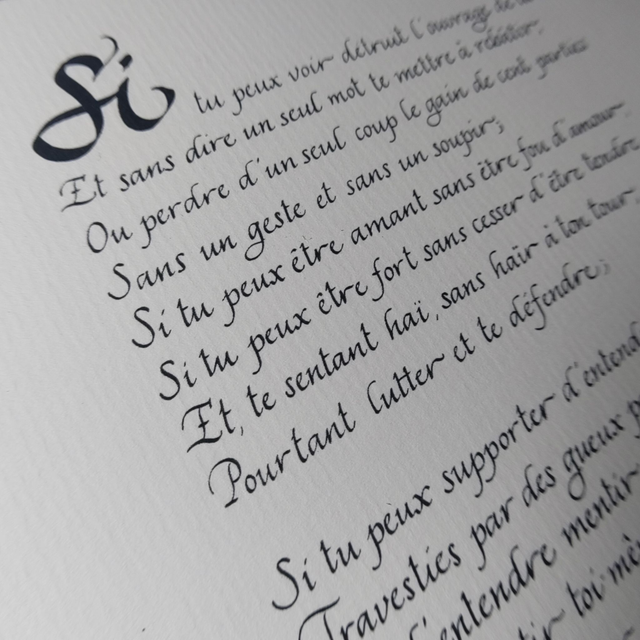 Si tu peux voir détruit l'ouvrage de
Et sans dire un seul mot te mettre à rebâtir,
Ou perdre d'un seul coup le gain de cent parties
Sans un geste et sans un soupir;
Si tu peux être amant sans être fou d'amour,
Si tu peux être fort sans cesser d'être tendre
Et, te sentant haï, sans haïr à ton tour,
Pourtant lutter et te défendre;
Si tu peux supporter d'entend
Travesties par des gueux p
d'entendre mentir
toi-mê